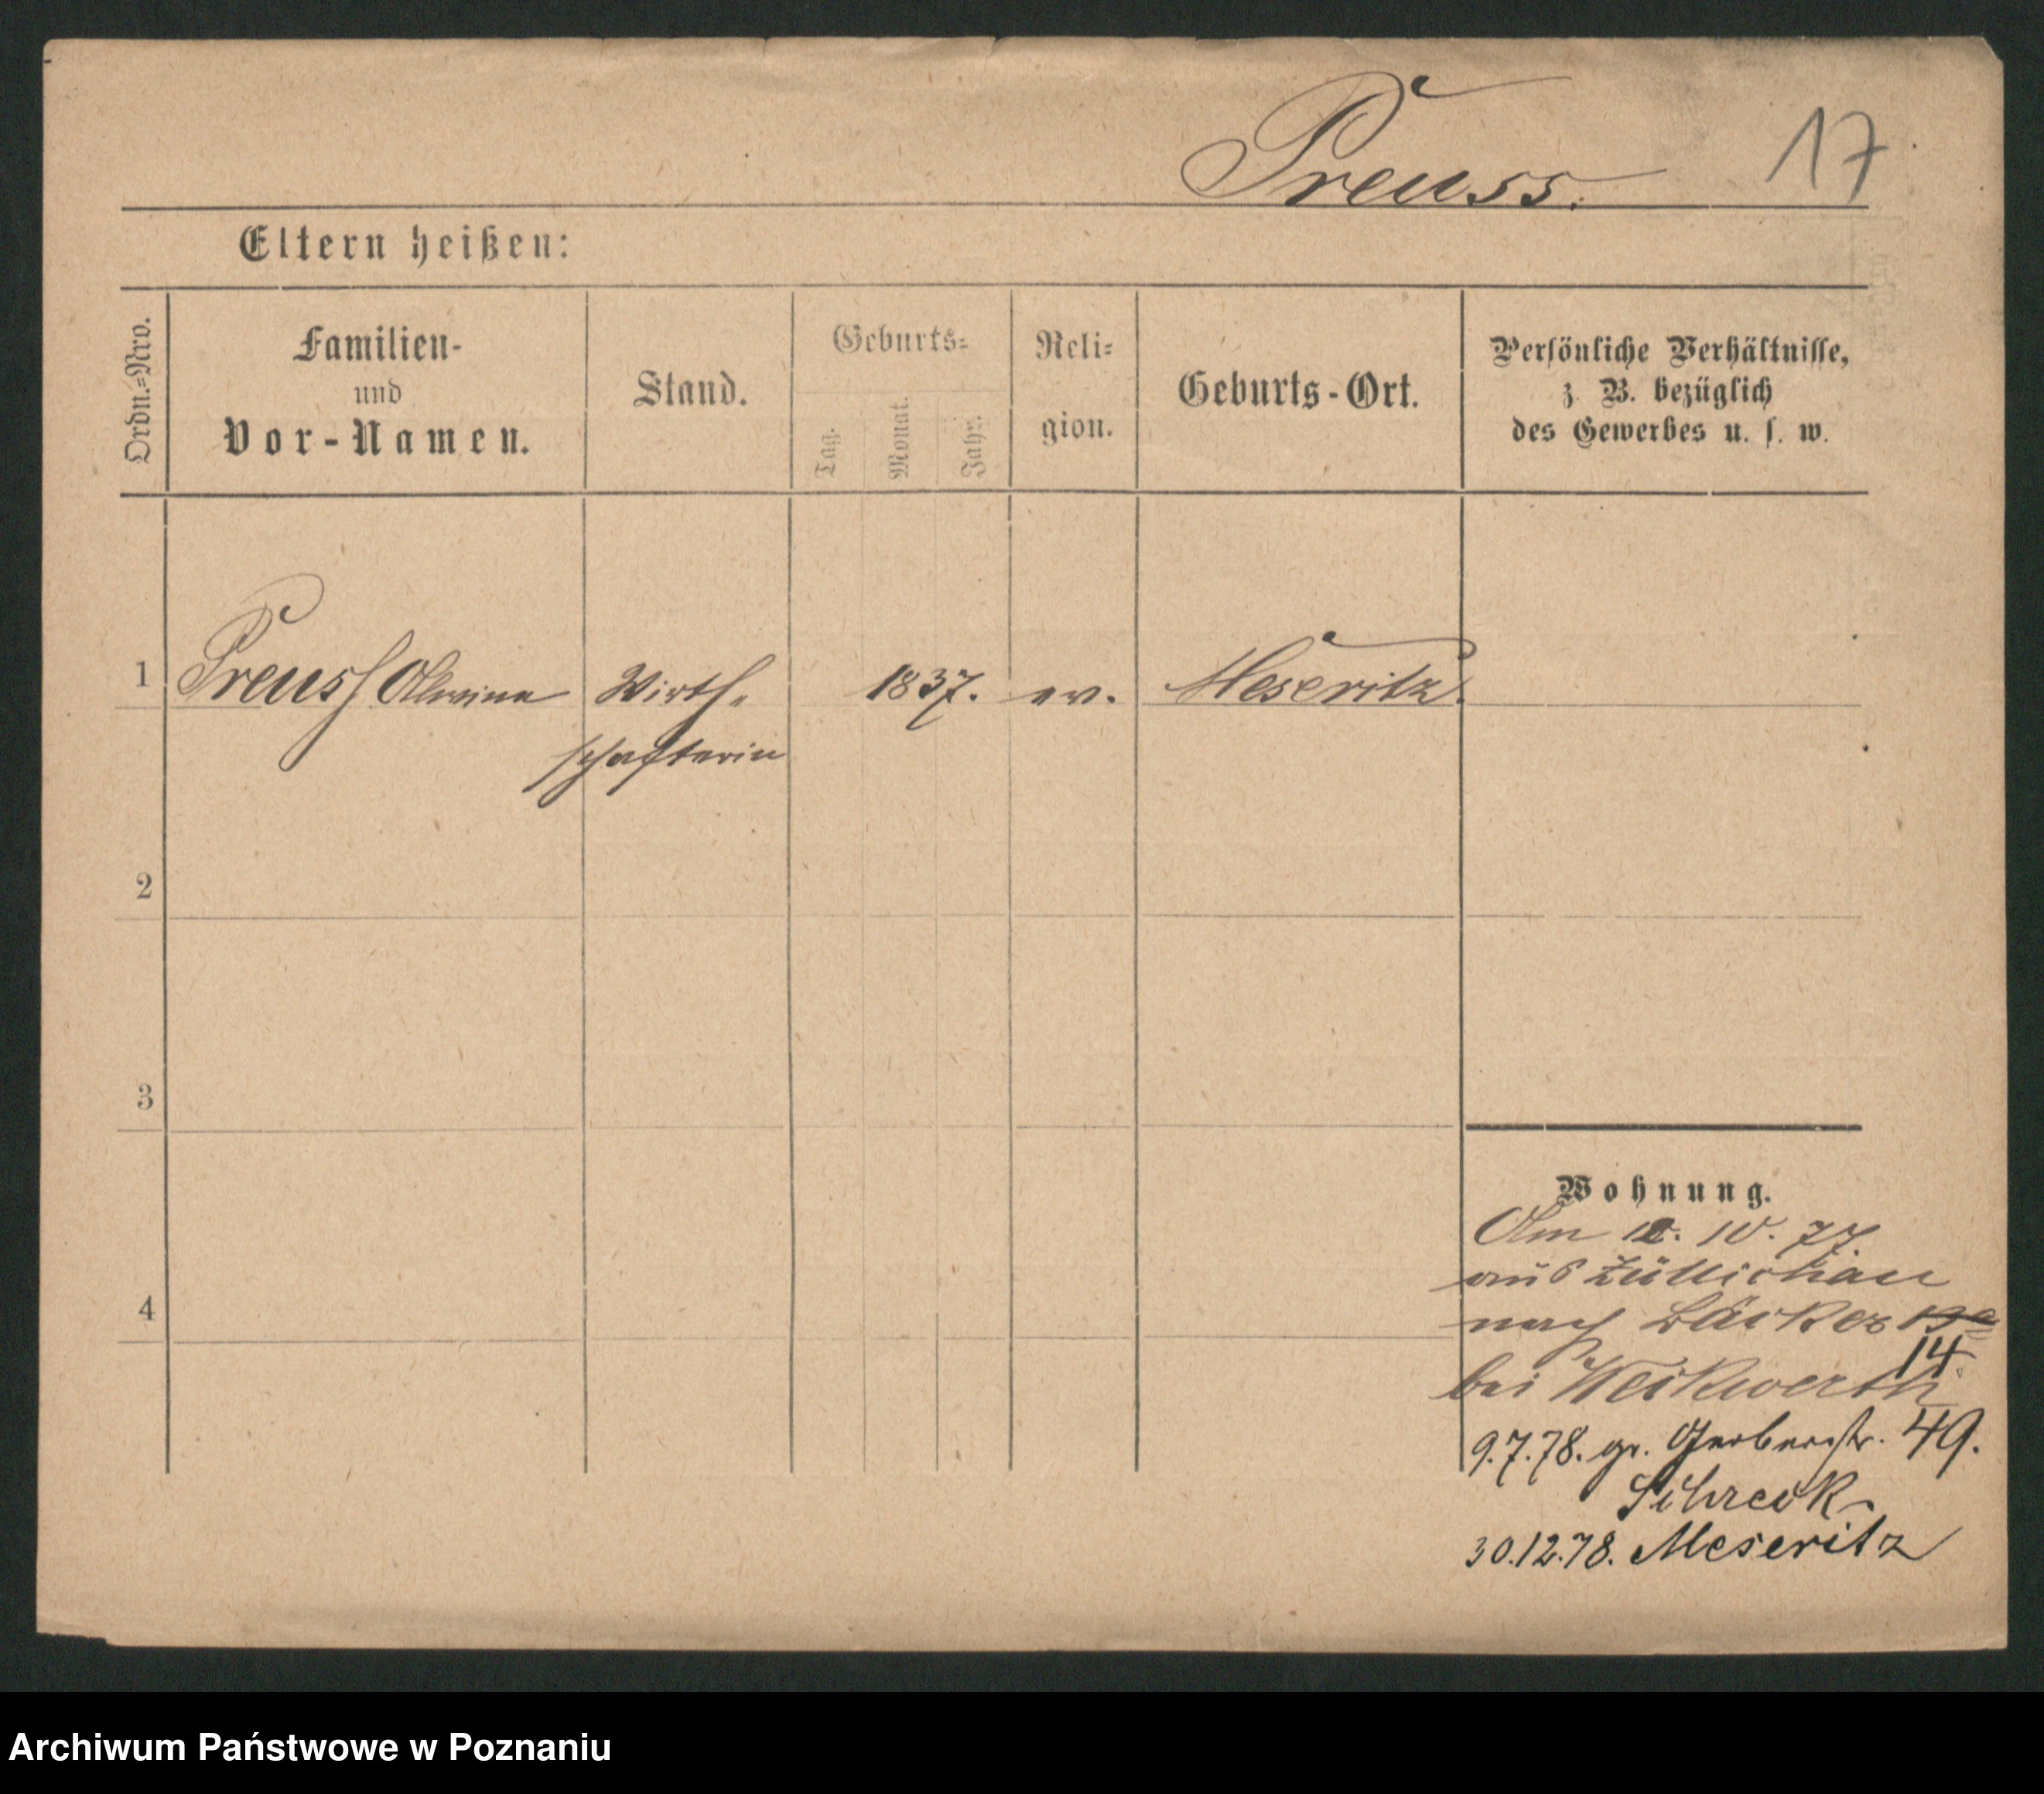 Preuss. 17
Eltern heißen:
Ordn.=Nro.
Familien-
und
Vor-Namen.
Stand.
Geburts=
Tag.
Monat.
Jahr.
Reli=
gion.
Geburts-Ort.
Persönliche Verhältnisse,
z. B. bezüglich
des Gewerbes u. s. w.
1 Preuß Alwine Wirth- 1837. ev. Meseritz.
schafterin
2
3
4
Wohnung.
Am 10. 77.
aus Züllichau
nach Bäcker
14.
bei Weikwerth
9.7.78. gr. Gerberstr. 49.
Schreck
30.12.78. Meseritz
Archiwum Państwowe w Poznaniu